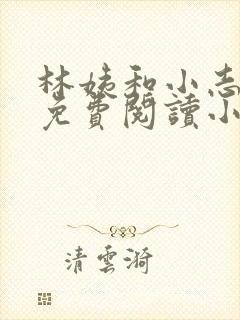 林姨和小志
免費閱讀小
清雲漪